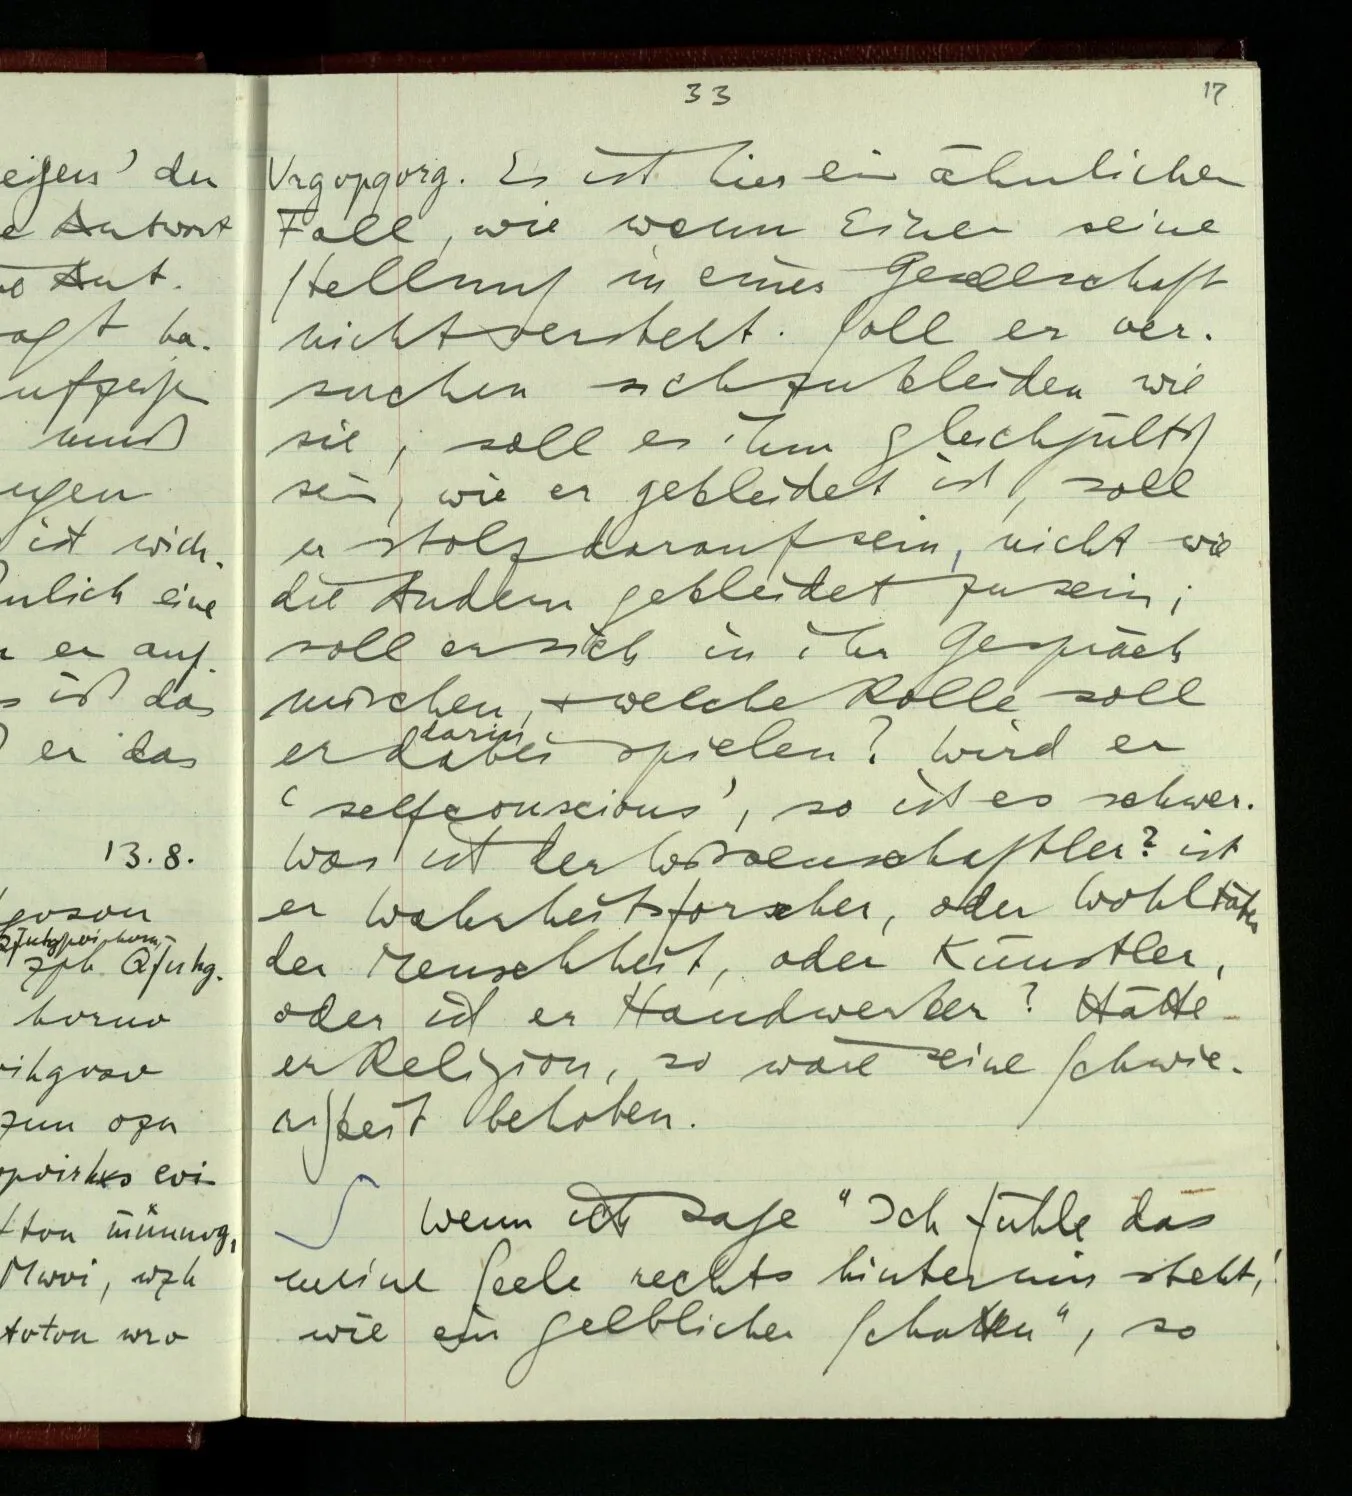 eigens' der
e Antwort
Ant.
agt ha-
aufzeige
muß
ugen
ist wich-
nlich eine
er auf-
ist das
er das
13.8.
horuo
zun ozn
münnog,
wzh
wro
33 17
Vrgopqorg. Es ist hier ein ähnlicher
Fall, wie wenn Einer seine
Stellung in einer Gesellschaft
nicht versteht. Soll er ver-
suchen sich zu kleiden wie
sie, soll es ihm gleichgültig
sein, wie er gekleidet ist, soll
er stolz darauf sein, nicht wie
die Andern gekleidet zu sein;
soll er sich in ihr Gespräch
mischen, + welche Rolle soll
darin
er dabei spielen? Wird er
'selfconscious', so ist es schwer.
Was ist der Wissenschaftler? ist
er Wahrheitsforscher, oder Wohltäter
der Menschheit, oder Künstler,
oder ist er Handwerker? Hätte
er Religion, so wäre seine Schwie-
rigkeit behoben.
Wenn ich sage "Ich fühle das
meine Seele rechts hinter mir steht,
wie ein gelblicher Schatten", so